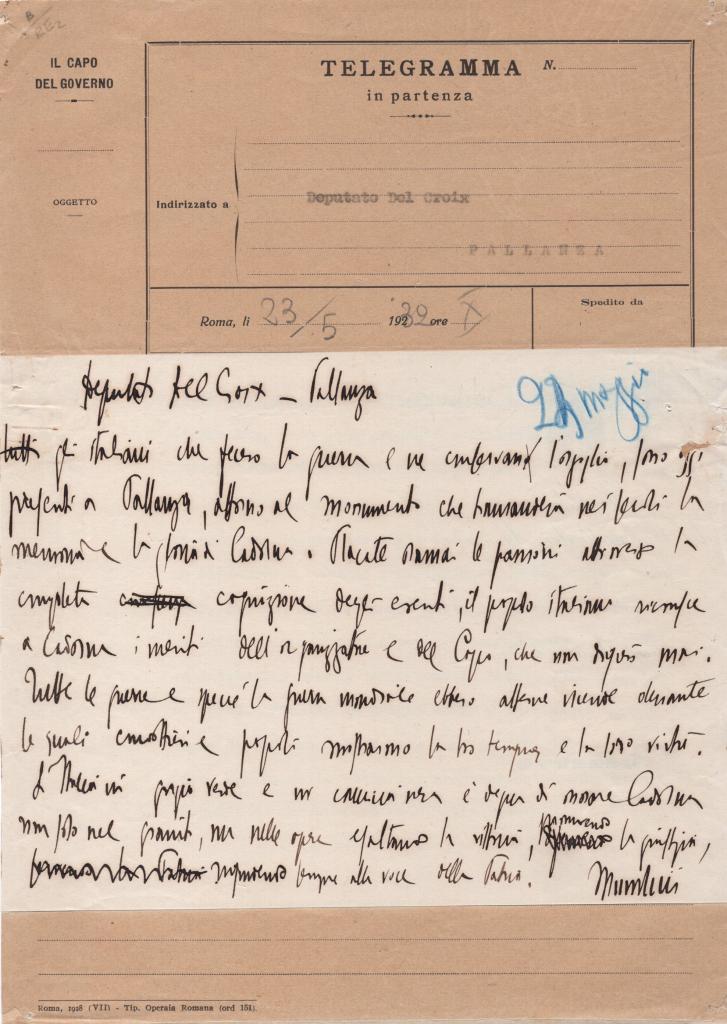 B
REZ
IL CAPO
DEL GOVERNO
OGGETTO
TELEGRAMMA N.
in partenza
Indirizzato a
Deputato Del Croix
PALLANZA
Roma, li 23/5 1932 ore X
Spedito da
Deputato Del Croix – Pallanza
maggio
tutti gli italiani che fecero la guerra e ne conservano l'orgoglio, sono oggi
presenti a Pallanza, attorno al monumento che tramanderà nei secoli la
memoria e la gloria di Cadorna. Placate oramai le passioni attraverso la
completa cognizione degli eventi, il popolo italiano riconosce
a Cadorna i meriti dell'organizzatore e del Capo, che non disperò mai.
Tutte le guerre e specie la guerra mondiale ebbero alterne vicende durante
le quali condottieri e popoli mostrarono la loro tempra e la loro virtù.
L'Italia in grigio verde e in camicia nera è degna di onorare Cadorna
non solo nel granito, ma nelle opere esaltando la vittoria, la giustizia,
rispondendo sempre alla voce della Patria. Mussolini
Roma, 1928 (VII) - Tip. Operaia Romana (ord 151).